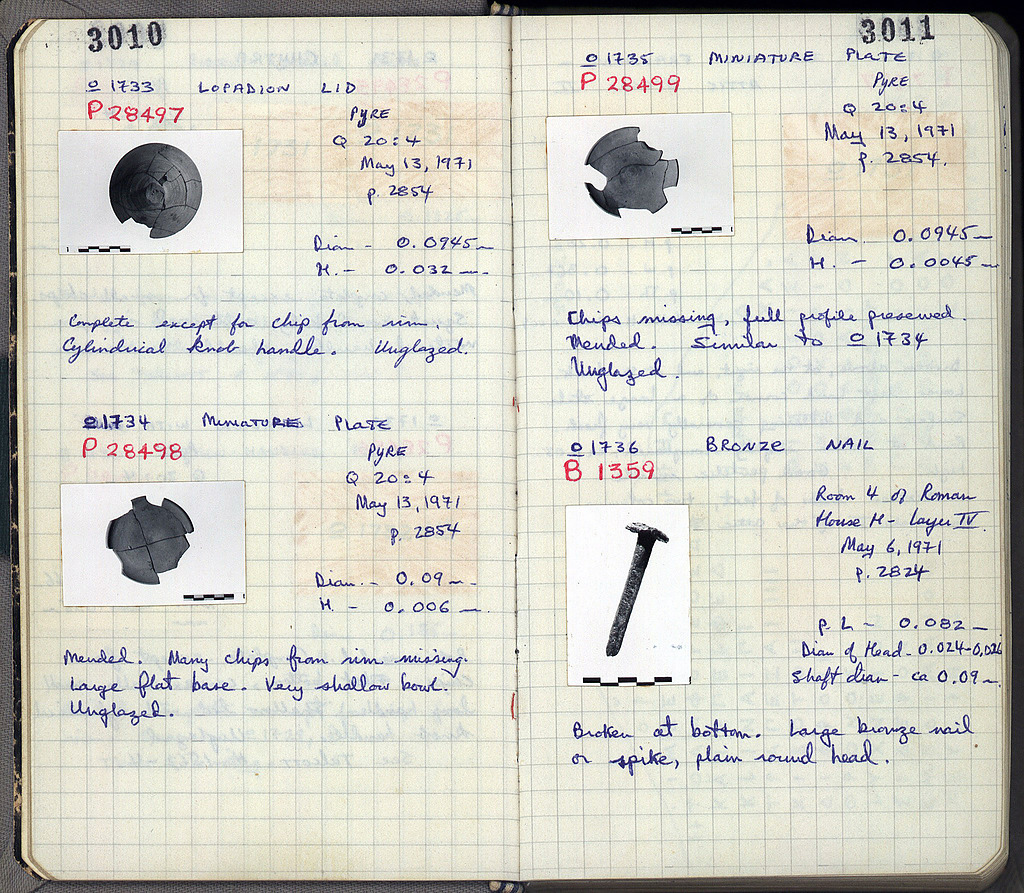 3010
o 1733 LOPADION LID
P 28497
PYRE
Q 20:4
May 13, 1971
p. 2854
Diam - 0.0945 m
H. - 0.032 m.
Complete except for chip from rim.
Cylindrical knob handle. Unglazed.
o 1734 MINIATURE PLATE
P 28498
PYRE
Q 20:4
May 13, 1971
p. 2854
Diam. - 0.09 m.
H. - 0.006 m.
Mended. Many chips from rim missing.
Large flat base. Very shallow bowl.
Unglazed.
3011
o 1735 MINIATURE PLATE
P 28499
PYRE
Q 20:4
May 13, 1971
p. 2854.
Diam. 0.0945 m
H. - 0.0045 m
Chips missing, full profile preserved.
Mended. Similar to o 1734
Unglazed.
o 1736 BRONZE NAIL
B 1359
Room 4 of Roman
House H - Layer IV.
May 6, 1971
p. 2824
p. L - 0.082 m
Diam of Head - 0.024-0.026
Shaft diam - ca 0.09 m.
Broken at bottom. Large bronze nail
or spike, plain round head.